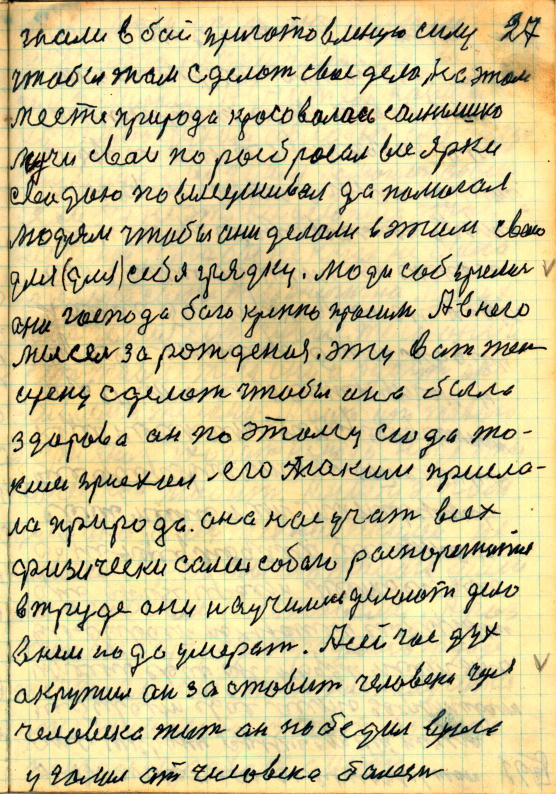 гнали в бой приготовленую силу 27
чтобы там сделат свае дело, на этом
месте природа красовалась солнышко
лучи сваи по росбросал все ярки
свадою
людям чтобы ани делали в этим сваю
для (для) себя грядку. Люди собирели
ани господа бога крепко просим А в него
мысел за рождения. эту вот жен
щену сделат чтобы ана была
здорова ан по этому сюда та-
ким приехал его таким присла-
ла природа. ана научат всех
физически
в труде ани научились делоют дело
в нем надо умерат. А сейчас дух
акружил ан заставит человека для
человека жит ан победил
у гонил ат человека балезн